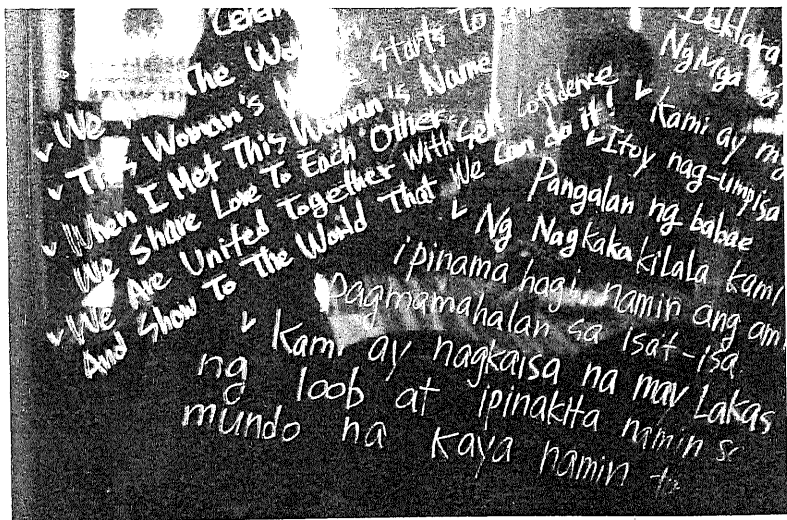 We The Wo
This Woman's starts to
When I Met This Woman's Name
We Share Love To Each Other
We Are United Together With Self Cofidence
And Show To The World That We Can do it!
Ng Mga
Kami ay mg
Itoy nag-umpisa
Pangalan ng babae
Ng Nagkakakilala kami
ipinama hagi namin ang am
pagmamahalan sa isat-isa
Kami ay nagkaisa na may Lakas
ng loob at ipinakita namin s
mundo na kaya namin to